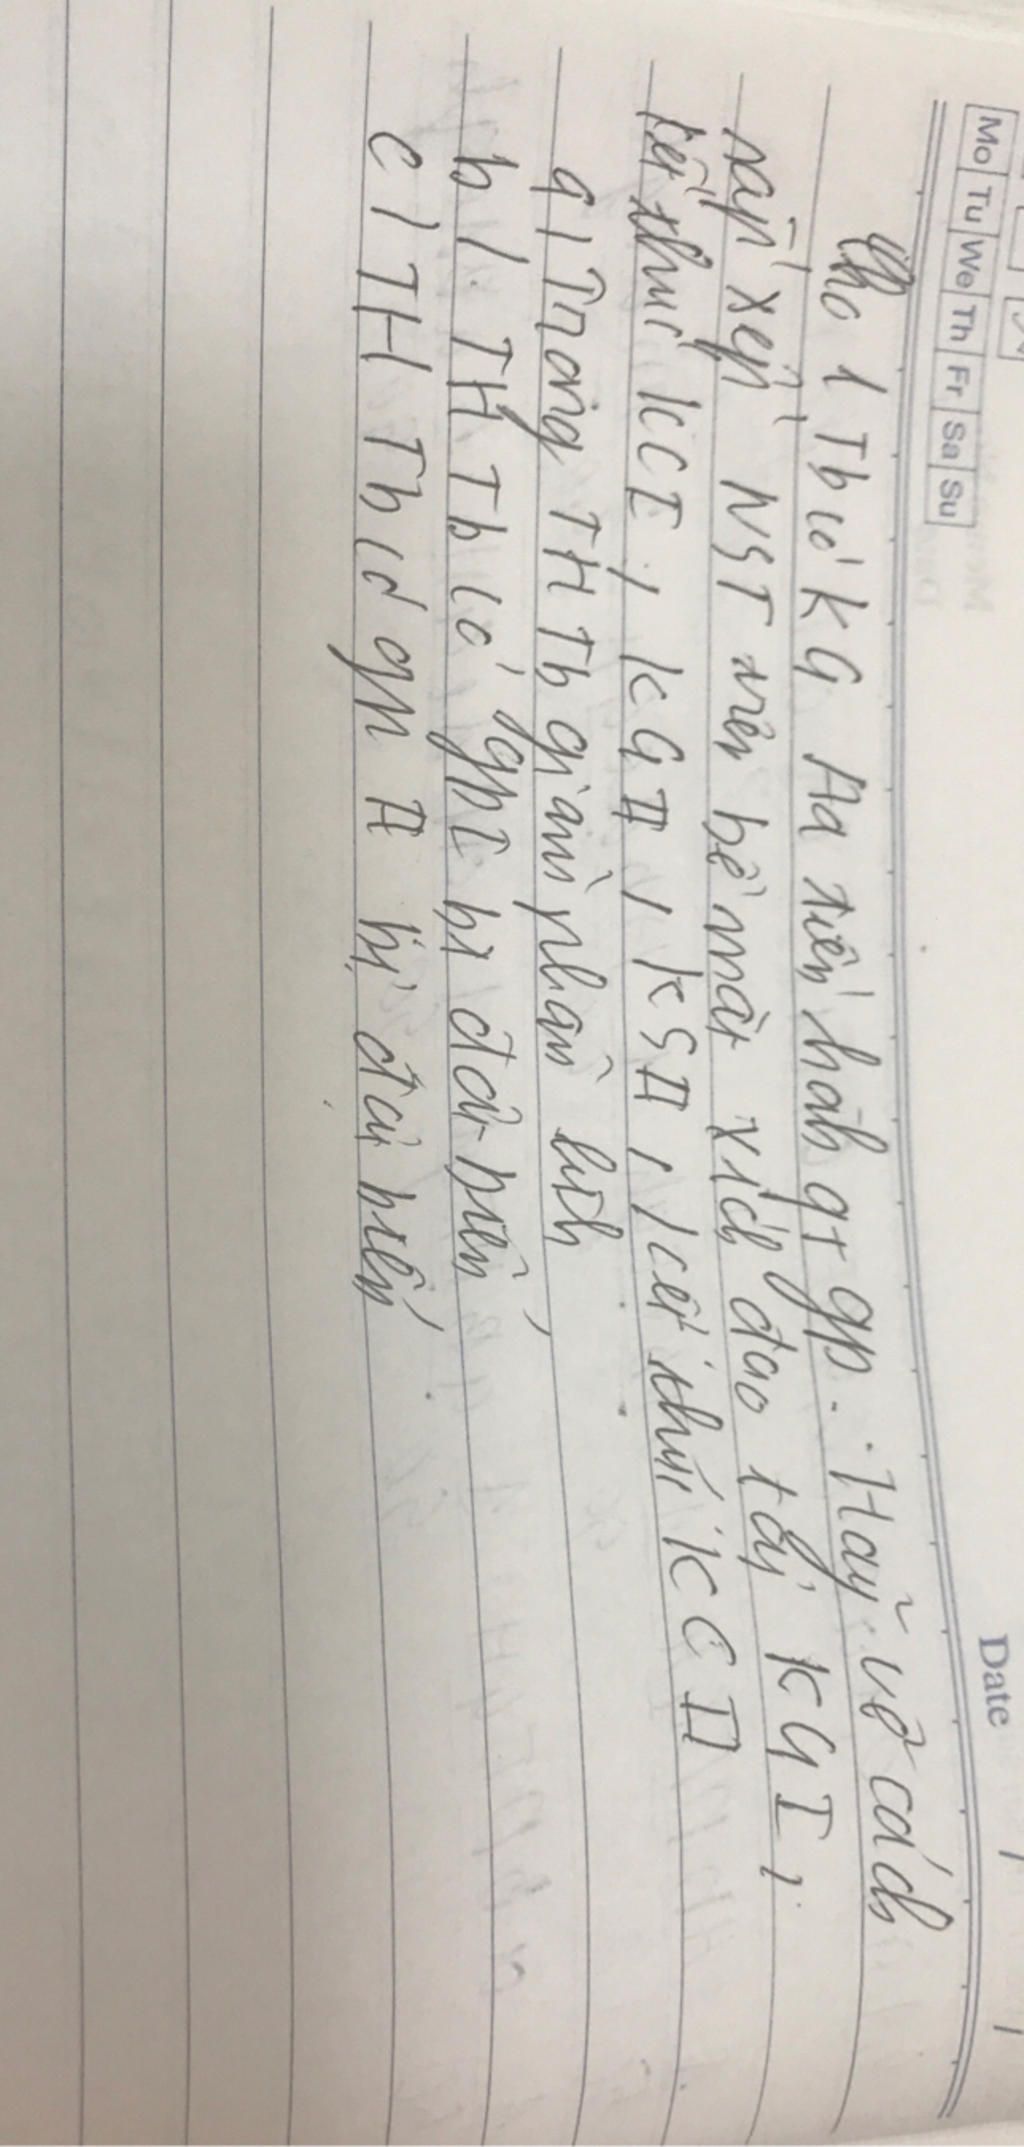 Mo Tu We Th Fr Sa Su
Date
Cho 1 Tb có KG Aa tiến hành qt gp. Hãy vẽ cách
sắp xếp NST trên bề mặt xích đạo tại KGI,
kết thúc KCI, KGII, KSII, kết thúc KCII
a) Trong TH Tb giảm phân bình
b) TH Tb có gpI bị đột biến
c) TH Tb có gp II bị đột biến